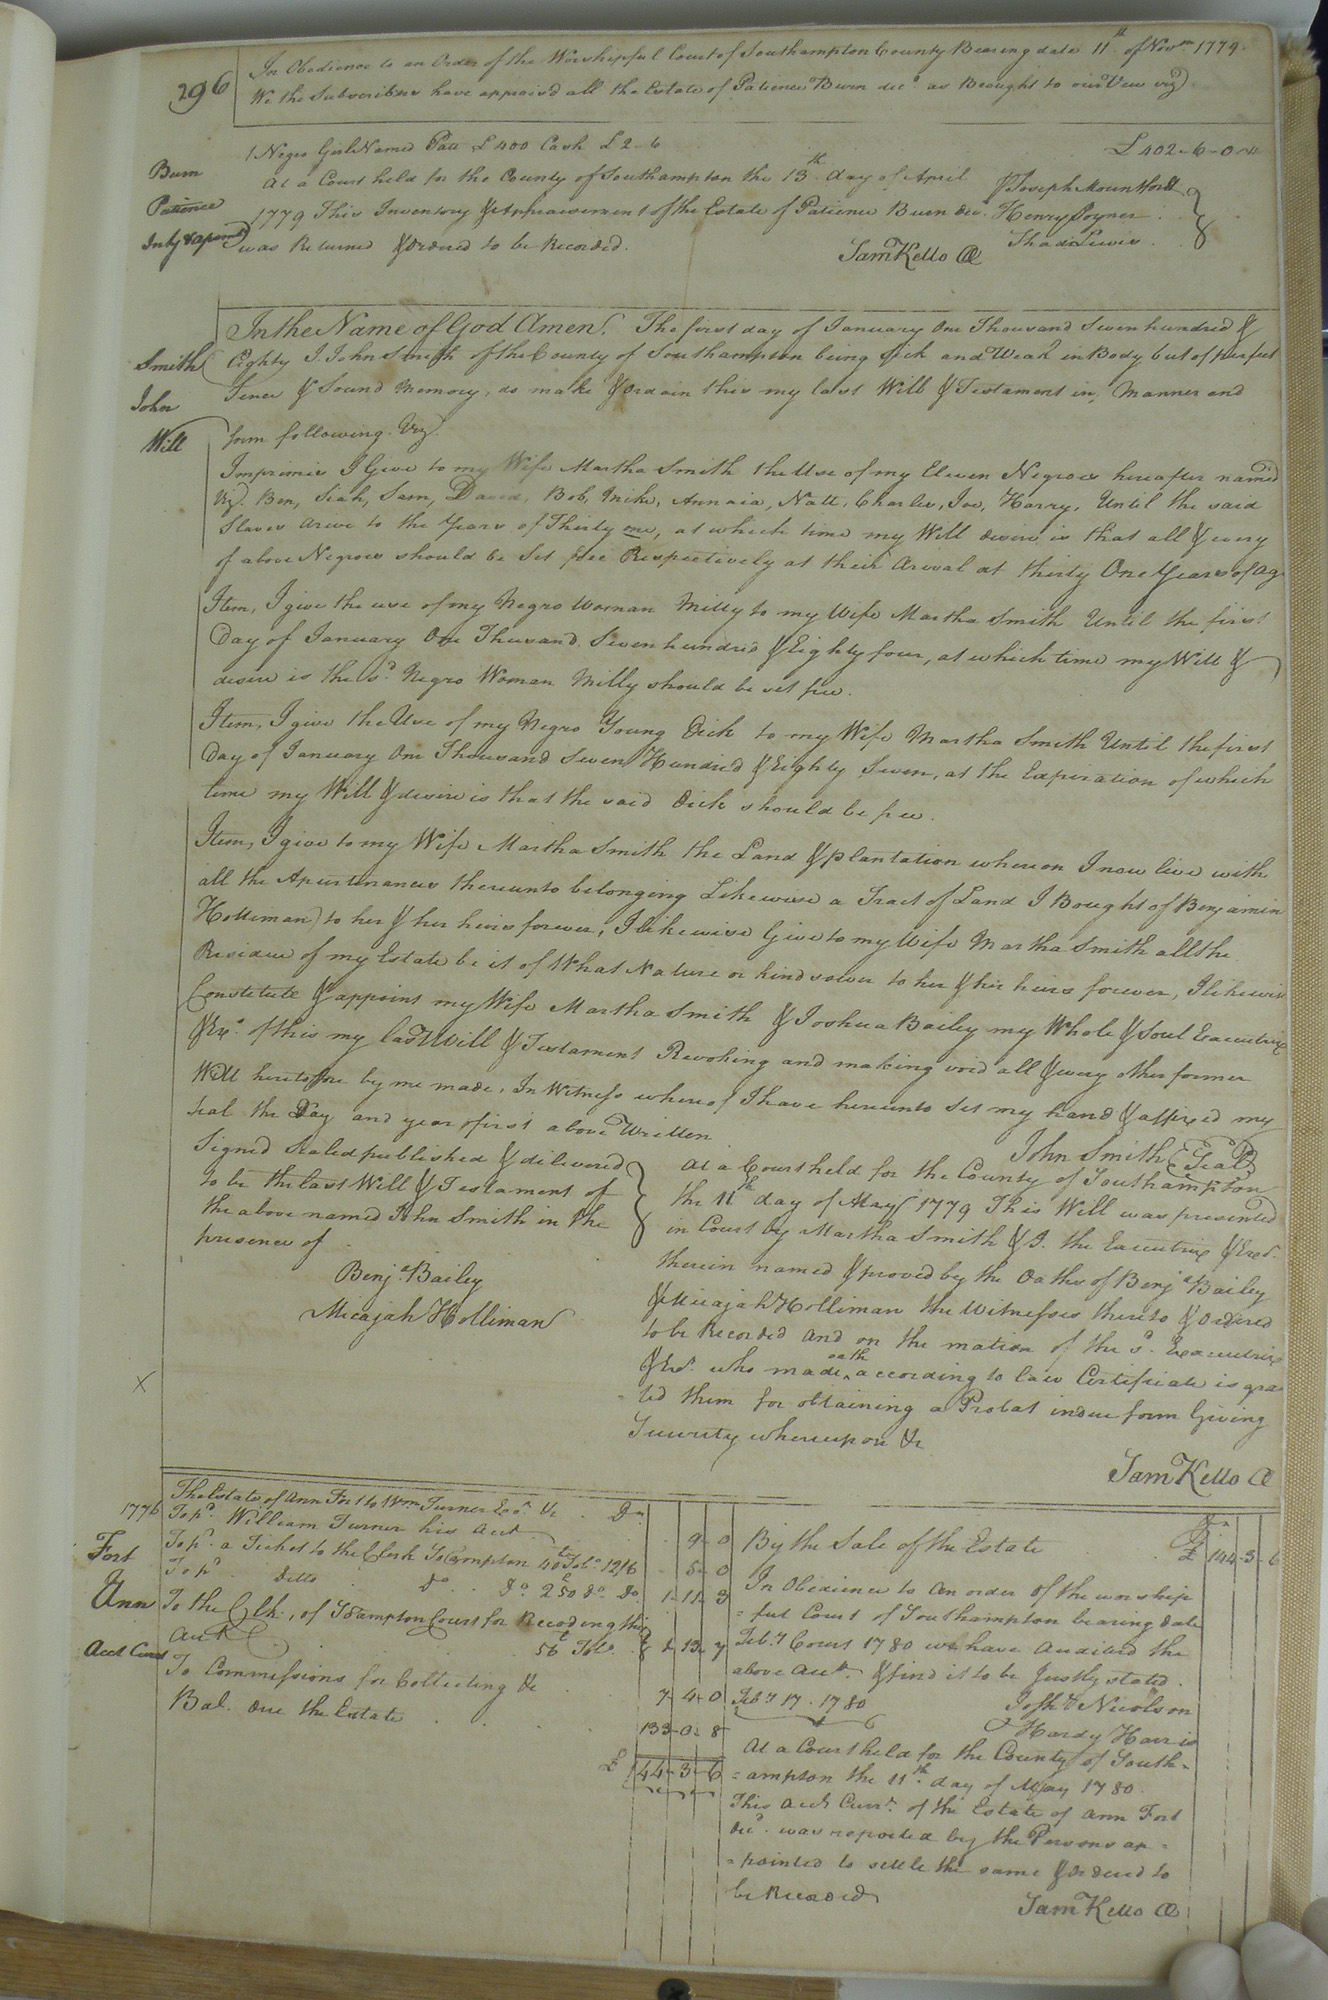 296
In Obedience to an Order of the Worshipful Court of Southampton County Bearing date 11th of Novm 1779.
We the Subscribers have appraisd all the Estate of Patience Burn decd as Brought to our View vizt
1 Negro Girl Named Patt £400 Cash £2-6 £402-6-0
Burn
Patience
Invty & apmt
At a Court held for the County of Southampton the 13th day of April
1779 This Inventory & Appraisement of the Estate of Patience Burn decd
was Returned & Ordered to be Recorded.
Joseph Mountfort
Henry Joyner
Thads Lewis
Sam Kello
Smith
John
Will
In the Name of God Amen. The first day of January One Thousand Seven hundred &
Eighty I John Smith of the County of Southampton being Sick and Weak in Body but of perfect
Sence & Sound Memory, do make & ordain this my last Will & Testament in, Manner and
form following. Viz.
Imprimis I Give to my Wife Martha Smith the Use of my Eleven Negroes hereafter named
Viz. Ben, Siah, Sam, David, Bob, Mike, Annaia, Natt, Charles, Joe, Harry, Until the said
Slaves arive to the Years of Thirty one, at which time my Will desire is that all & every
of above Negroes should be Set free Respectively at their Arival at thirty One Years of Ag
Item, I give the use of my Negro Woman Milly to my Wife Martha Smith Until the first
Day of January One Thousand Seven hundrid & Eighty four, at which time my Will &
desire is the sd Negro Woman Milly should be set free.
Item, I give the Use of my Negro Young Dick to my Wife Martha Smith Until the first
Day of January One Thousand Seven Hundred & Eighty Seven, at the Expiration of which
time my Will & desire is that the said Dick should be free.
Item, I give to my Wife Martha Smith the Land & plantation whereon I now live with
all the Apurtenances thereunto belonging Likewise a Tract of Land I Bought of Benjamin
Holliman to her & her heirs forever, I likewise Give to my Wife Martha Smith all the
Residue of my Estate be it of What Nature or kind soever to her & her heirs forever, I likewise
Constitute & appoint my Wife Martha Smith & Joshua Bailey my Whole & Soul Executrix
& Exr. of this my last Will & Testament Revoking and making void all & every other former
Will heretofore by me made, In Witness whereof I have hereunto Set my hand & affixed my
Seal the Day and year first above Written
John Smith (Seal)
Signed Sealed published & delivered
to be the last Will & Testament of
the above named John Smith in the
presence of
Benja Bailey
Micajah Holliman
At a Court held for the County of Southampton
the 11th day of May 1779 This Will was presented
in Court by Martha Smith & J. the Executrix & Exr.
therein named & proved by the Oaths of Benja Bailey
& Micajah Holliman the Witnesses thereto & Ordered
to be Recorded and on the motion of the sd. Executrix
& Exr. who made oath according to law Certificate is gran
-ted them for obtaining a Probat in due form Giving
Security whereupon &c
Sam Kello
X
1776
Fort
Ann
Acct Curt
The Estate of Ann Fort to Wm Turner Exr. &c Dr
To pd. William Turner his Acct 9-0
To pd. a Ticket to the Clerk So Campton 40 Tobo 1216 5-0
To pd ditto do Do 250 do Do 1-11-3
To the Clk, of SoHampton Court for Recording this
Acct 56 Tobo
To Commissions for Collecting &c 7-4-0
Bal. Due the Estate 133-0-8
£ 144-3-6
By the Sale of the Estate £ 144-3-6
In Obedience to an order of the worship
=ful Court of Southampton bearing date
Feby Court 1780 we have Audited the
above Acct. & find it to be Justly stated.
Feby 17. 1780
Nicolson
Hardy Harris
At a Court held for the County of South=
=ampton the 11th day of May 1780.
This Acct Curr. of the Estate of Ann Fort
decd. was reported by the Persons ap=
=pointed to settle the same & Ordered to
be Recorded
Sam Kello